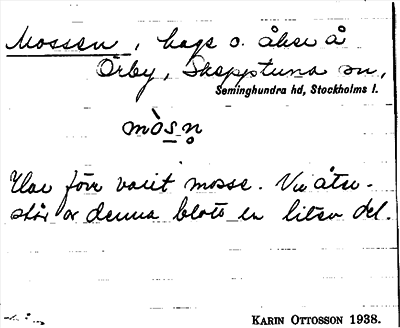 Mossen, hage o. åker å
Örby, Skepptuna sn,
Seminghundra hd, Stockholms l.
mòsn̥
Har förr varit mosse. Nu åter-
står av denna blott en liten del.
KARIN OTTOSSON 1938.